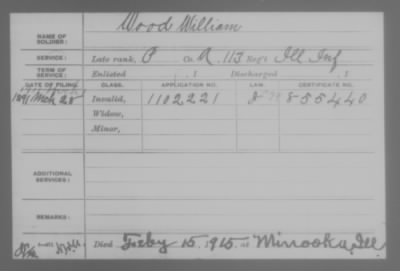 Wood William
NAME OF SOLDIER:
SERVICE: Late rank, P Co. A, 113 Reg't Ill Inf
TERM OF SERVICE: Enlisted , 1 Discharged , 1
DATE OF FILING. CLASS. APPLICATION NO. LAW. CERTIFICATE NO.
1891 Mch 28 Invalid, 1102221 855440
Widow,
Minor,
ADDITIONAL SERVICES:
REMARKS:
Died Feby 15, 1915, at Minooka, Ill